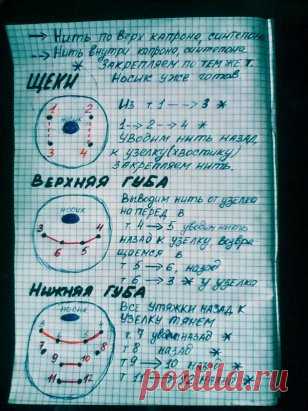 → Нить по верх капрона, синтепона
--→ Нить внутри капрона, синтепона
* Закрепляем по тем же т.
ЩЕКИ Носик уже готов.
1 2
3 4
Из т 1 --→ 3 *
1-→ 2 -→ 4 *
Уводим нить назад,
к узелку (хвостику)
Закрепляем нить.
ВЕРХНЯЯ ГУБА
носик
3 4
6 5
Выводим нить от узелка
наперед в
т. 4 → 5 уводим нить
назад к узелку, возвра
щаемся в
т 5 → 6, назад
т 6 → 3 * у узелка
НИЖНЯЯ ГУБА
носик
7 8
9 10
11 12
ВСЕ УТЯЖКИ НАЗАД К
УЗЕЛКУ ТЯНЕМ
т. 7 уводим назад *
т 8 назад *
т 9 → 10 назад *
т 11
postila.ru